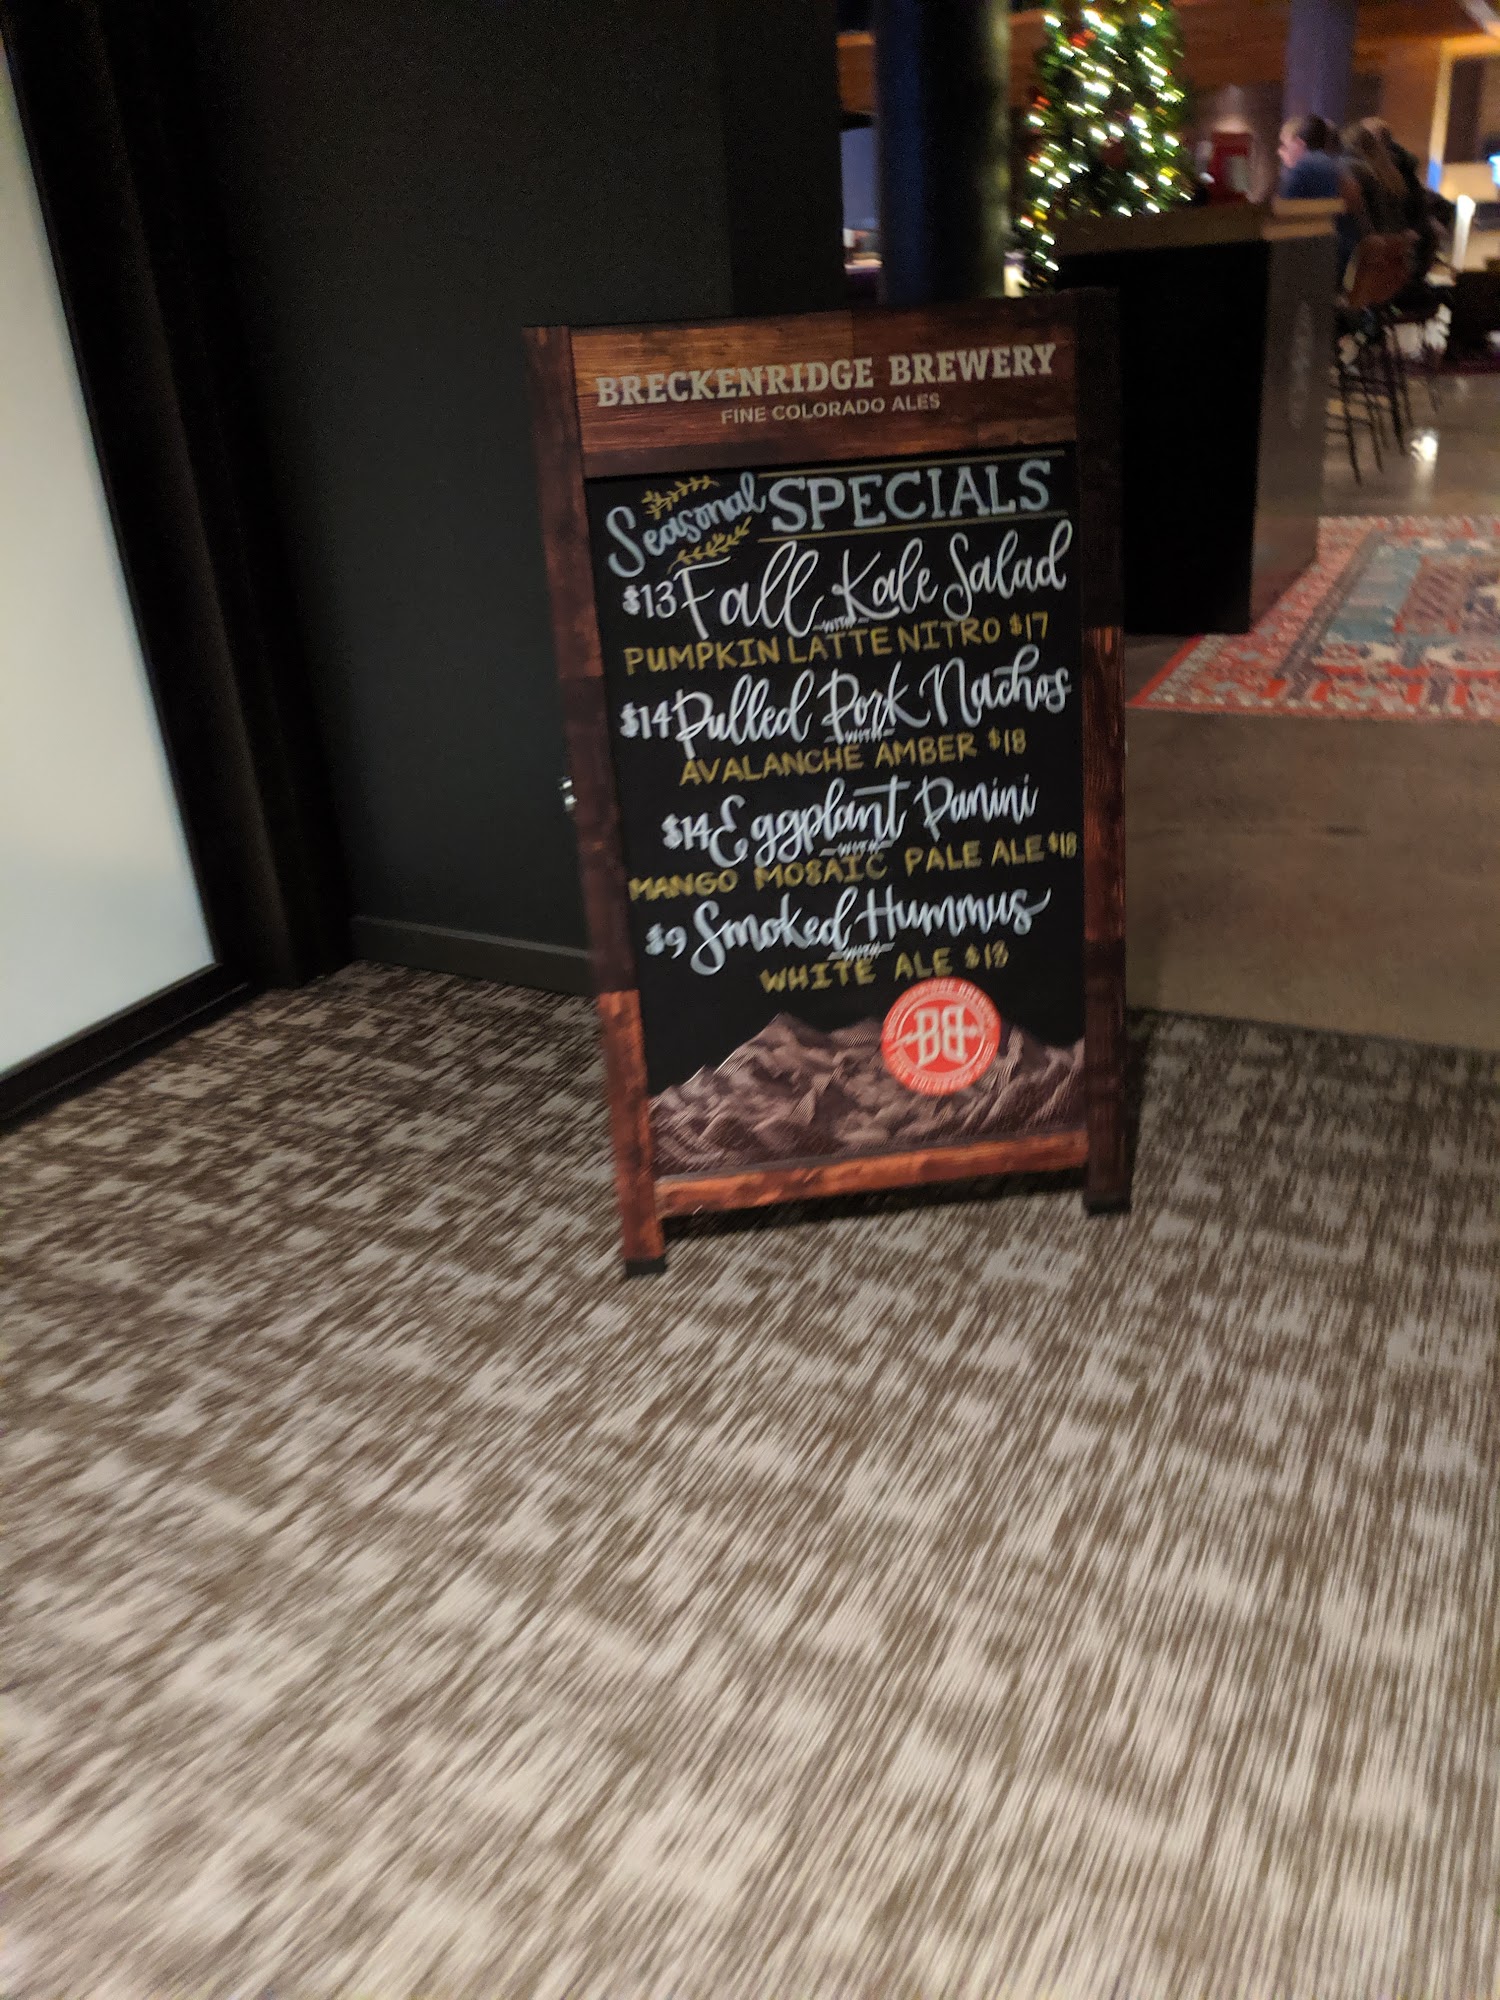 BRECKENRIDGE BREWERY
FINE COLORADO ALES
Seasonal SPECIALS
$13 Fall Kale Salad
WITH
PUMPKIN LATTE NITRO $17
$14 Pulled Pork Nachos
WITH
AVALANCHE AMBER $18
$14 Eggplant Panini
WITH
MANGO MOSAIC PALE ALE $18
$9 Smoked Hummus
WITH
WHITE ALE $13
BB